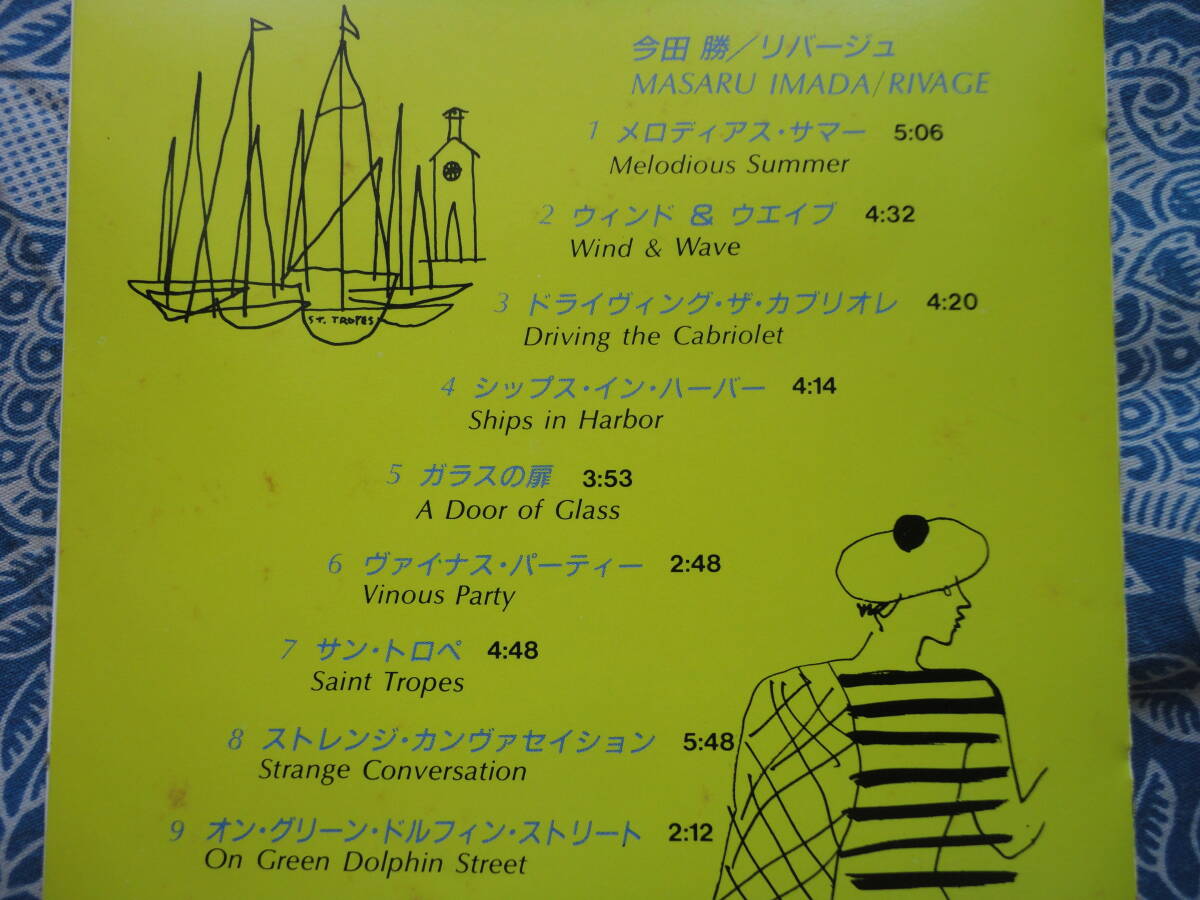 今田 勝／リバージュ
MASARU IMADA/RIVAGE
1 メロディアス・サマー 5:06
Melodious Summer
2 ウィンド & ウエイブ 4:32
Wind & Wave
3 ドライヴィング・ザ・カブリオレ 4:20
Driving the Cabriolet
4 シップス・イン・ハーバー 4:14
Ships in Harbor
5 ガラスの扉 3:53
A Door of Glass
6 ヴァイナス・パーティー 2:48
Vinous Party
7 サン・トロペ 4:48
Saint Tropes
8 ストレンジ・カンヴァセイション 5:48
Strange Conversation
9 オン・グリーン・ドルフィン・ストリート 2:12
On Green Dolphin Street
ST. TROPES